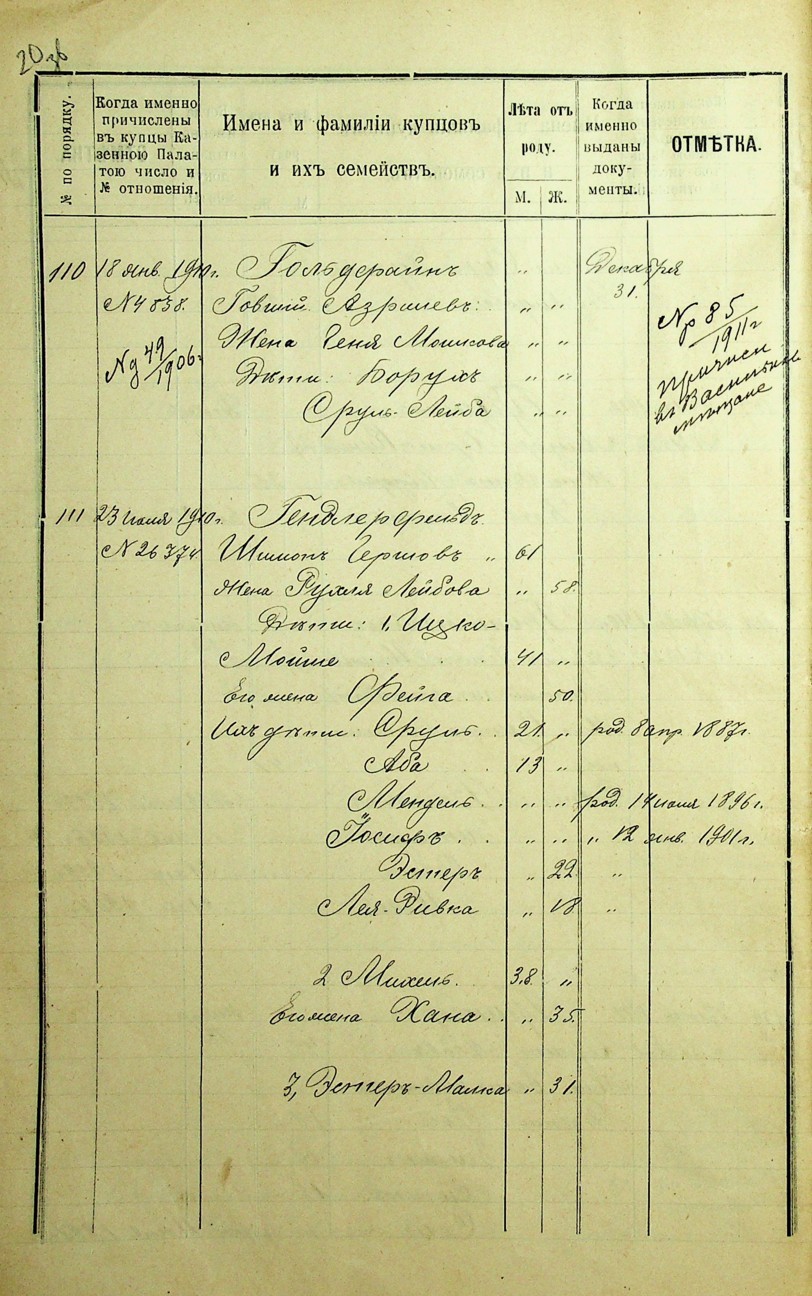 20 об
№ по порядку.
Когда именно
причислены
въ купцы Ка-
зенною Пала-
тою число и
№ отношенія.
Имена и фамиліи купцовъ
и ихъ семействъ.
Лѣта отъ
роду.
М. Ж.
Когда
именно
выданы
доку-
менты.
ОТМѢТКА.
110 18 янв. 1910 г. Гольдерайнъ „ Декабря
31.
N 4838. Говший Азрилевъ „ „
N д 49/1906 г
Жена Геня Мошкова „ „
Дѣти: Борухъ „ „
Сруль-Лейба „ „
Nр 85/1911 г
причисл
въ Васильков
мѣщане
111 23 июля 1910 г. Гендлерфельдъ
N 26374 Шимонъ Гершовъ „ 61
Жена Рухля Лейбова „ 58.
Дѣти: 1, Ицко-
Мойше 41 „
Его жена Фейга 50.
Ихъ дѣти: Сруль 21. „ род. 8 апр. 1887 г.
Аба 13 „
Мендель „ „ род. 14 июля 1896 г.
Йосифъ „ „ „ 12 янв. 1901 г.
Эстеръ „ 22 „
Лея-Ривка „ 18 „
2 Михель. 38. „
Его жена Хана „ 35.
3, Эстеръ-Малка „ 31.